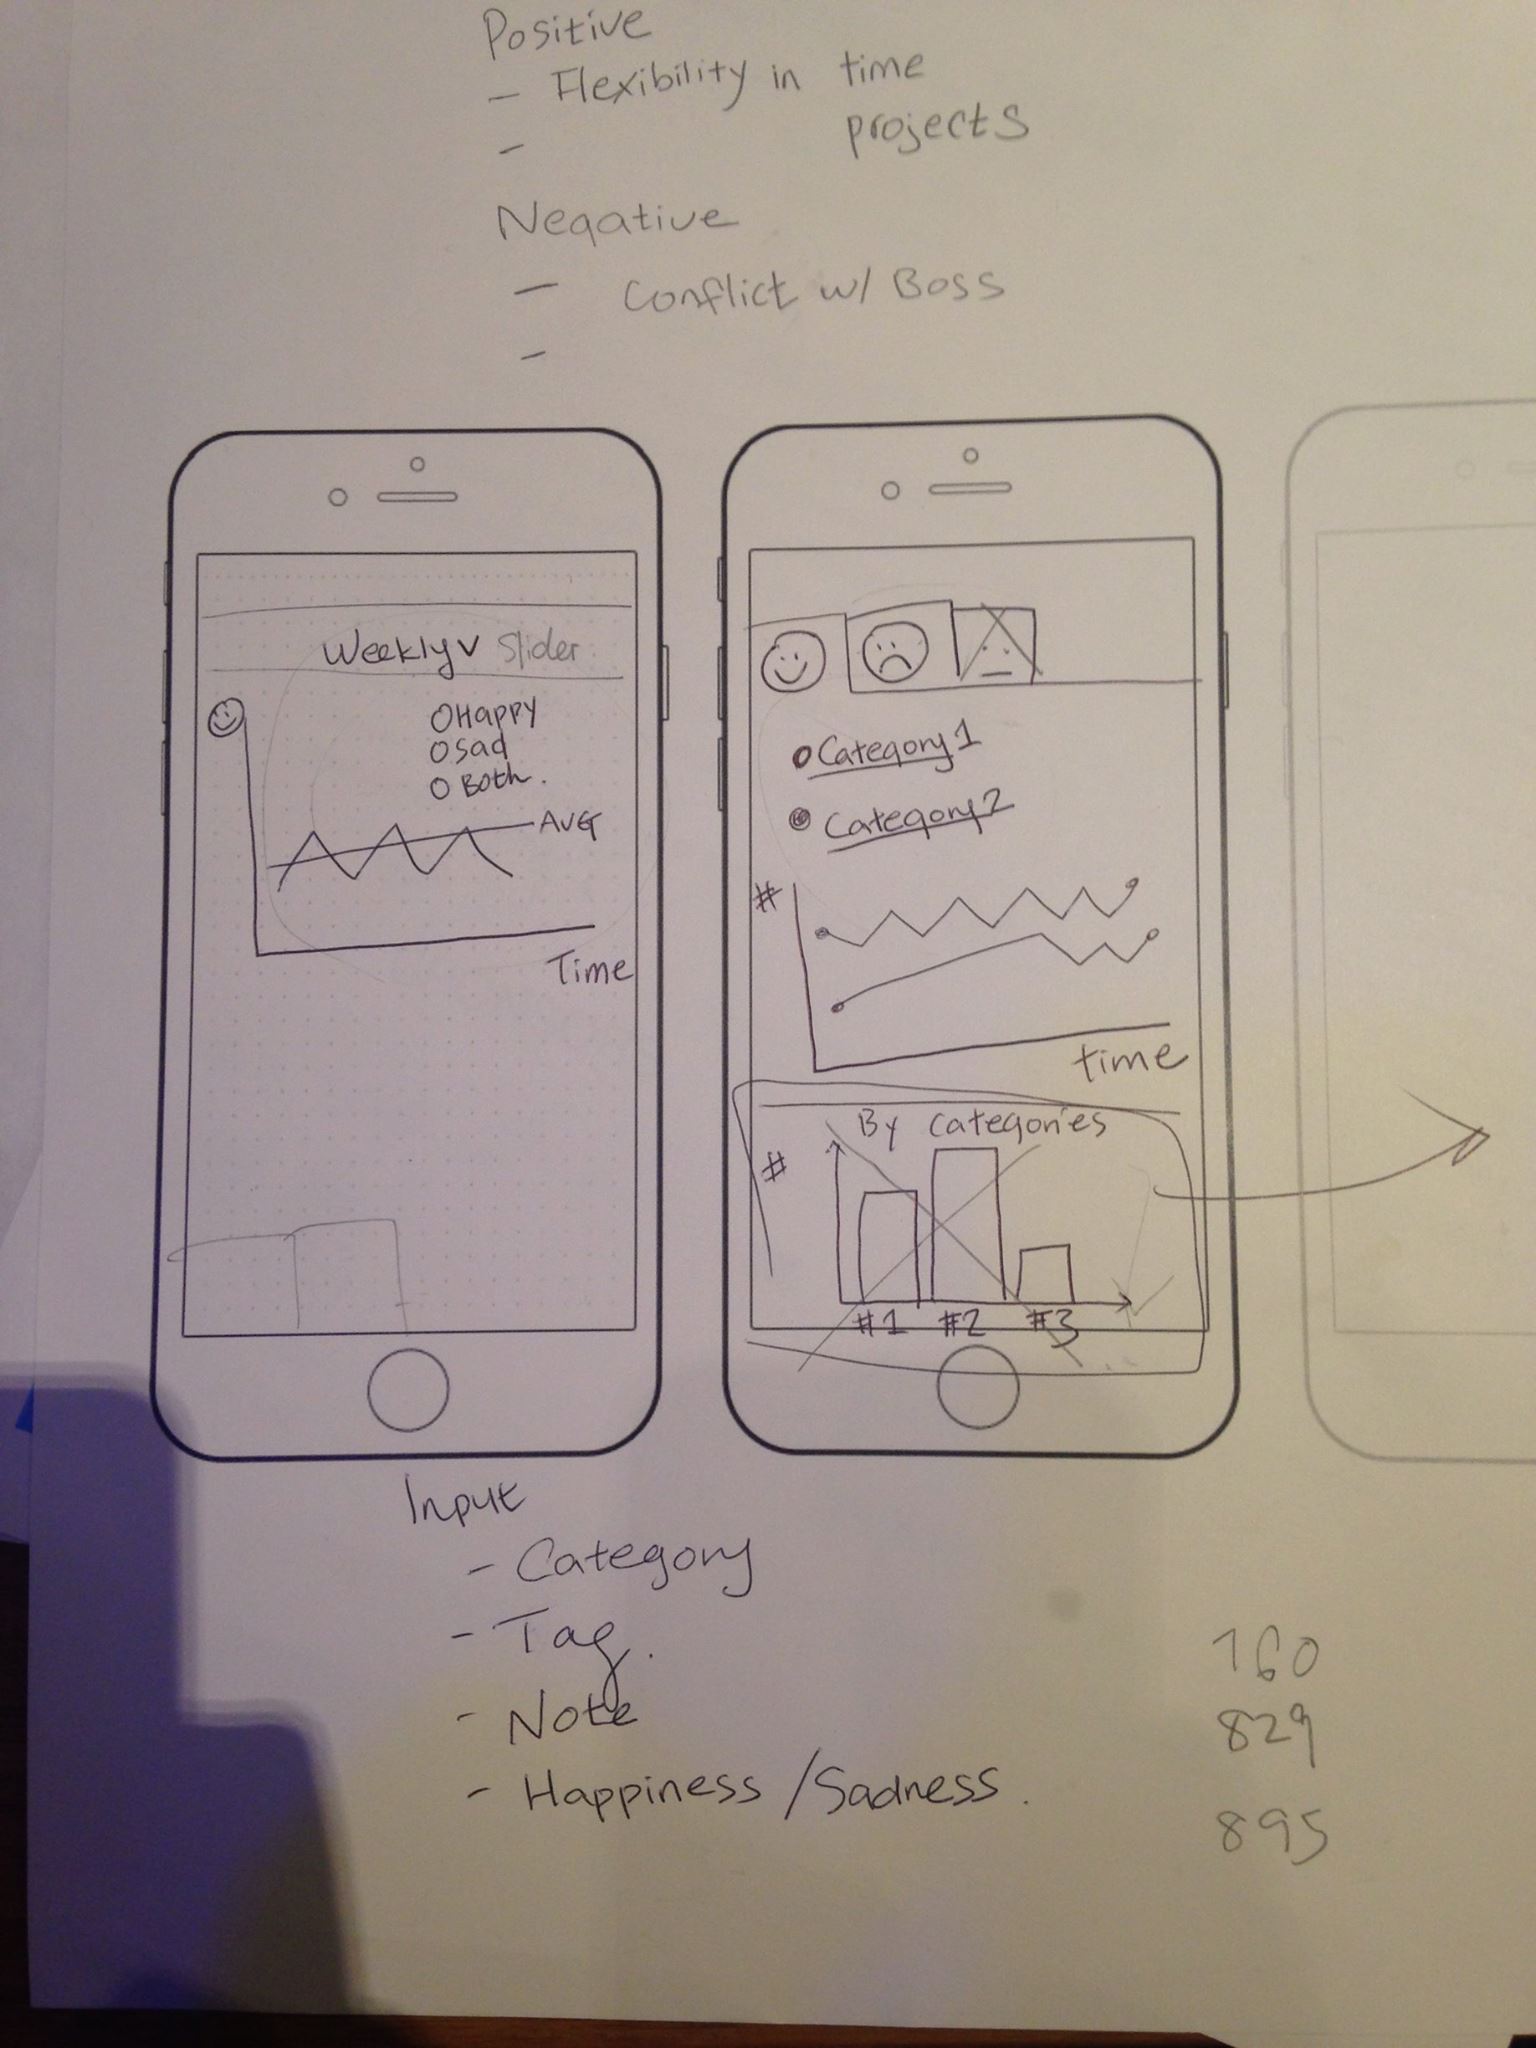 Positive
- Flexibility in time
projects
-
Negative
- Conflict w/ Boss
-
Weekly v Slider
Happy
Sad
Both.
AVG
Time
Category 1
Category 2
#
time
By Categories
#
#1 #2 #3
Input
- Category
- Tag.
- Note
- Happiness / Sadness.
760
829
895